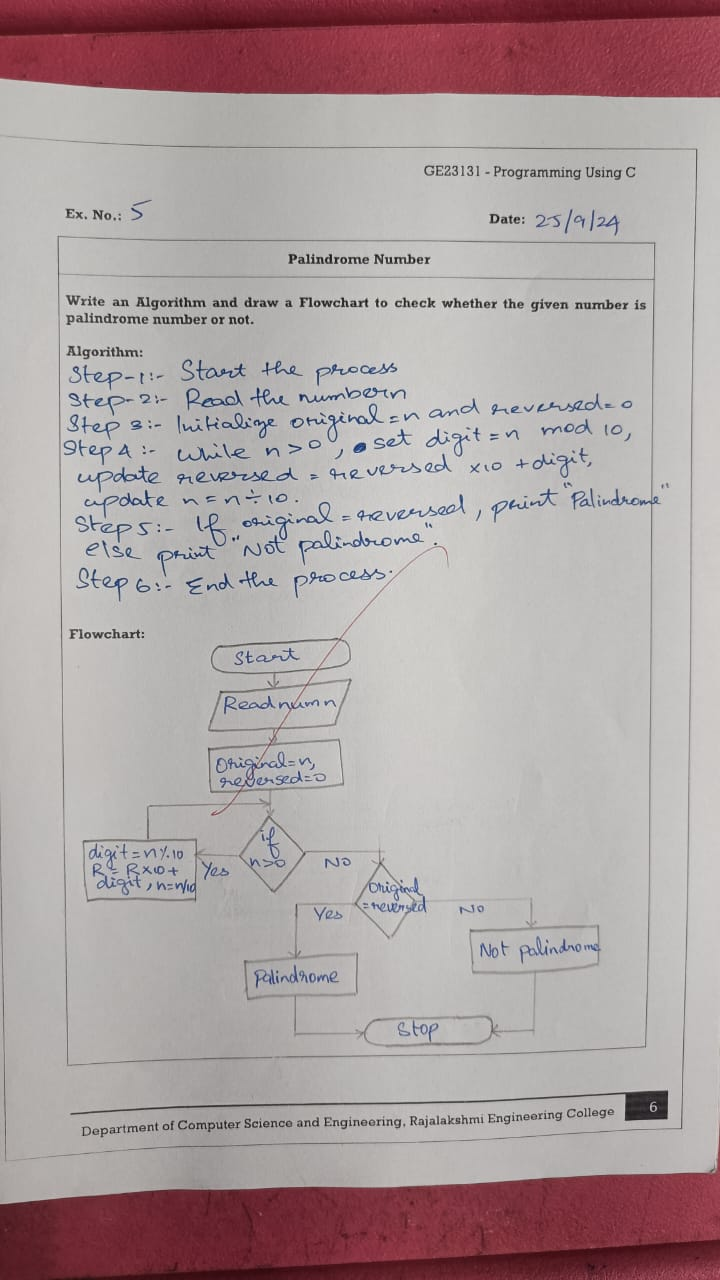 GE23131 - Programming Using C
Ex. No.: 5
Date: 25/9/24
Palindrome Number
Write an Algorithm and draw a Flowchart to check whether the given number is
palindrome number or not.
Algorithm:
Step-1:- Start the process
Step-2:- Read the numbern
Step 3:- Initialize original=n and reversed=0
Step 4:- While n>0, set digit=n mod 10,
update reversed = reversed x10 + digit,
update n=n÷10.
Step 5:- If original = reversed, print "Palindrome"
else print "Not palindrome".
Step 6:- End the process.
Flowchart:
Start
Read num n
Original=n,
reversed=0
if
n>0
digit=n%10
R=Rx10+
digit, n=n/10
Yes
NO
Original
=reversed
Yes
NO
Palindrome
Not palindrome
Stop
Department of Computer Science and Engineering, Rajalakshmi Engineering College
6